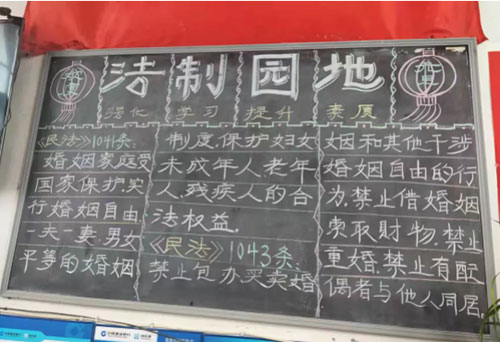 法制园地
强化 学习 提升 素质
《民法》1041条:
婚姻家庭受
国家保护.实
行婚姻自由
一夫一妻.男女
平等的婚姻
制度.保护妇女
未成年人.老年
人.残疾人的合
法权益.
《民法》1043条:
禁止包办买卖婚
姻和其他干涉
婚姻自由的行
为.禁止借婚姻
索取财物.禁止
重婚.禁止有配
偶者与他人同居.